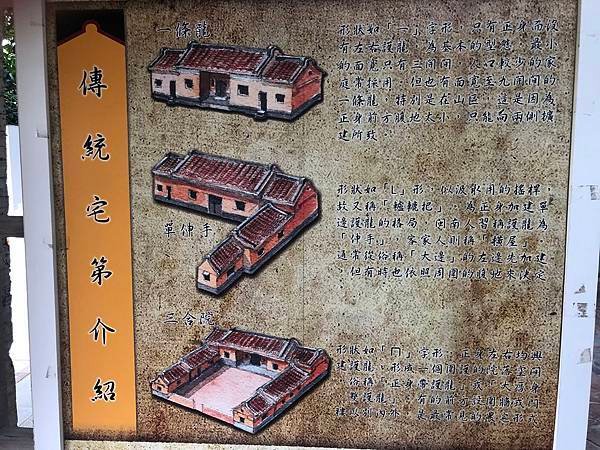 傳統宅第介紹
一條龍
形狀如「一」字形，只有正身而沒
有左右護龍，為基本的型態，最小
的面寬只有三間，口較少的家
庭常採用，但也有面至九間的
一條龍，特別是在山區，這是因為
正身前方腹地太小，只能向兩側擴
建所致。
單伸手
形狀如「L」形，似汲取用的搖桿，
故又稱「轆轤把」，為正身加建單
邊護龍的格局，閩南人習稱護龍為
「伸手」，客家人則稱「橫屋」，
通常從俗稱「大邊」的左邊先加建
，但有時也依照周圍的腹地來決定
三合院
形狀如「ㄇ」字形，正身的左右均興
建護龍，形成一個
，俗稱「正身
整護龍的前方
是最常見的